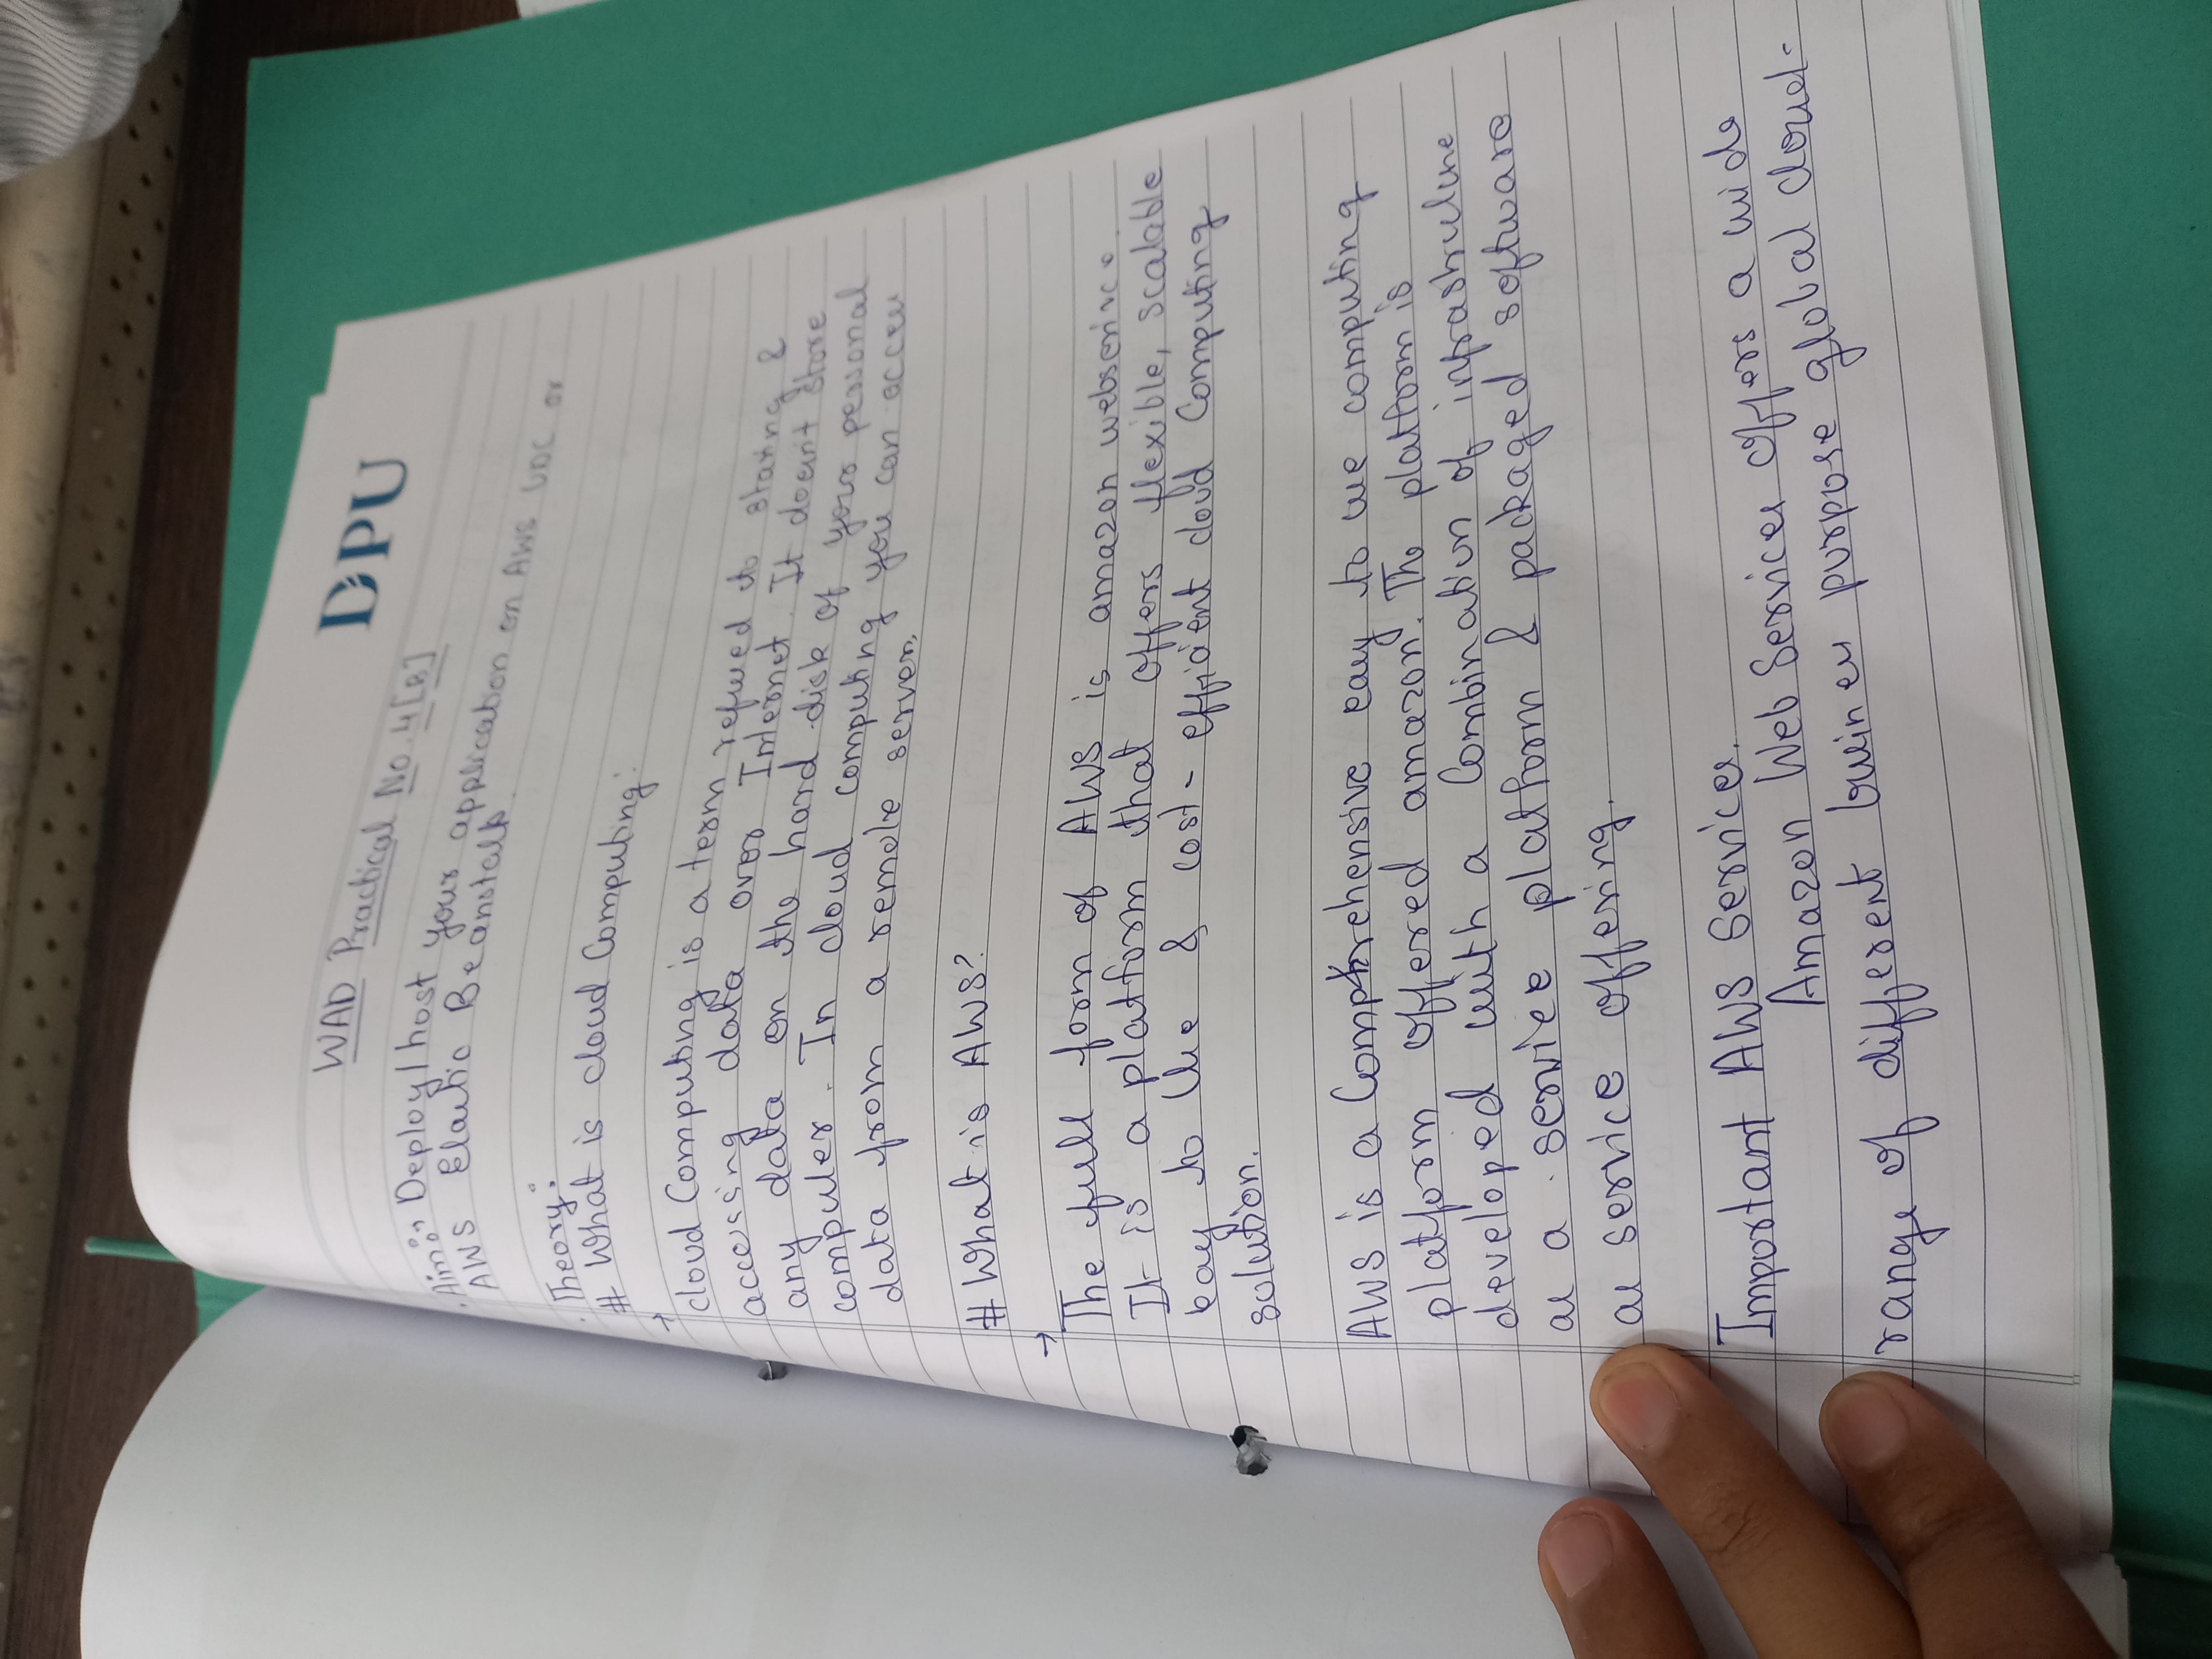 DPU
WAD Practical No. 4[B]
Aim: Deploy/host your application on AWS VPC or
AWS Elastic Beanstalk.
Theory:
# What is cloud Computing:
→
cloud Computing is a term refered to storing &
accessing data over Internet. It doesn't store
any data on the hard disk of your personal
computer. In cloud computing you can access
data from a remote server.
# What is AWS?
→
The full form of AWS is amazon webservice.
It is a platform that offers flexible, scalable
easy to Use & cost-efficient cloud Computing
solution.
AWS is a Comprehensive easy to use computing
platform offered amazon. The platform is
developed with a Combination of infrastructure
as a service platform & packaged software
as service offering.
Important AWS Services.
Amazon Web Services offers a wide
range of different business purpose global cloud-